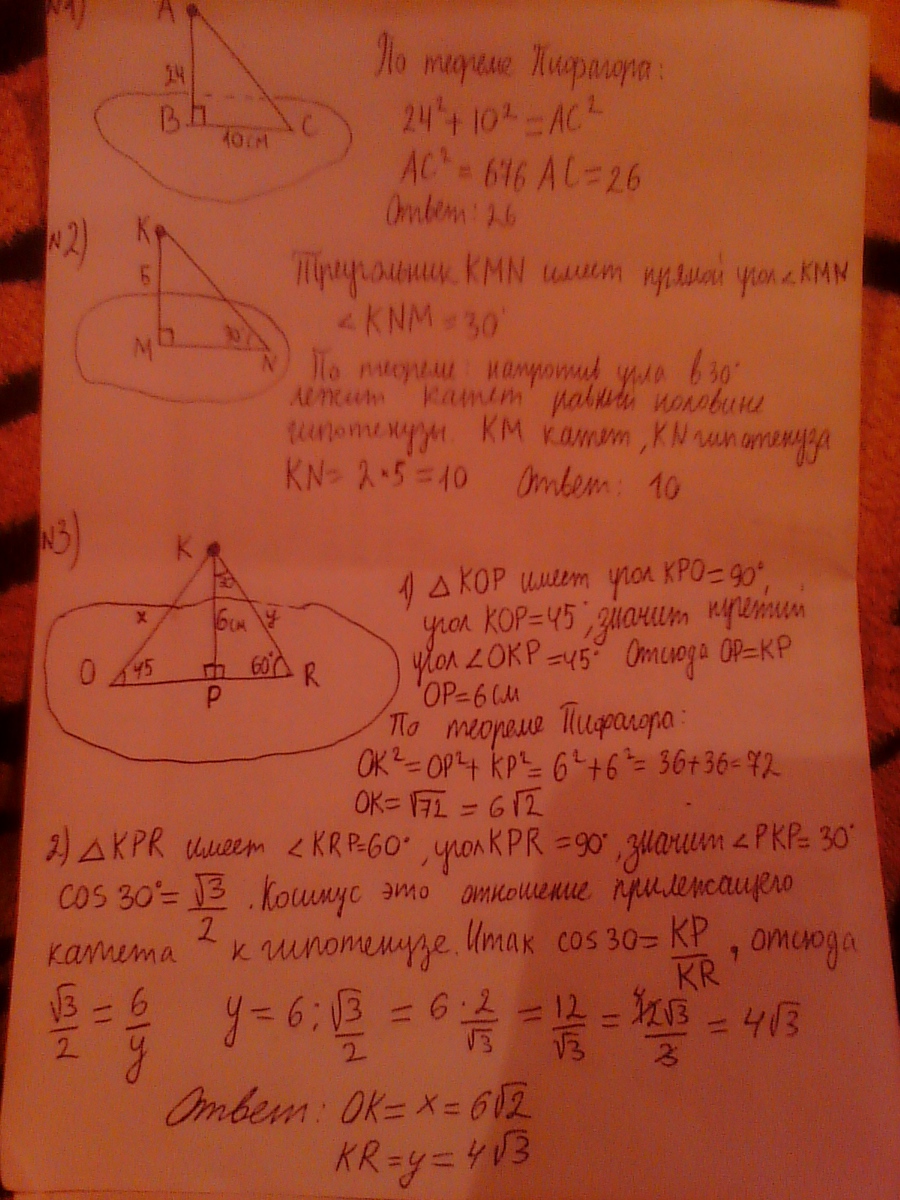 №1)
A
24
B
10см
C
По теореме Пифагора:
24² + 10² = AC²
AC² = 676 AC = 26
Ответ: 26
№2)
K
5
M
30°
N
Треугольник KMN имеет прямой угол ∠KMN
∠KNM = 30°
По теореме: напротив угла в 30°
лежит катет равный половине
гипотенузы. KM катет, KN гипотенуза
KN = 2 * 5 = 10 Ответ: 10
№3)
K
30
x
6см
y
O
45
60°
R
P
1) △KOP имеет угол KPO = 90°,
угол KOP = 45°, значит третий
угол ∠OKP = 45° Отсюда OP = KP
OP = 6 см
По теореме Пифагора:
OK² = OP² + KP² = 6² + 6² = 36 + 36 = 72
OK = √72 = 6√2
2) △KPR имеет ∠KRP = 60°, угол KPR = 90°, значит ∠PKP = 30°
cos 30° = √3/2. Косинус это отношение прилежащего
катета к гипотенузе. Итак cos 30 = KP/KR, отсюда
√3/2 = 6/y y = 6 : √3/2 = 6 · 2/√3 = 12/√3 = 12√3/3 = 4√3
Ответ: OK = x = 6√2
KR = y = 4√3